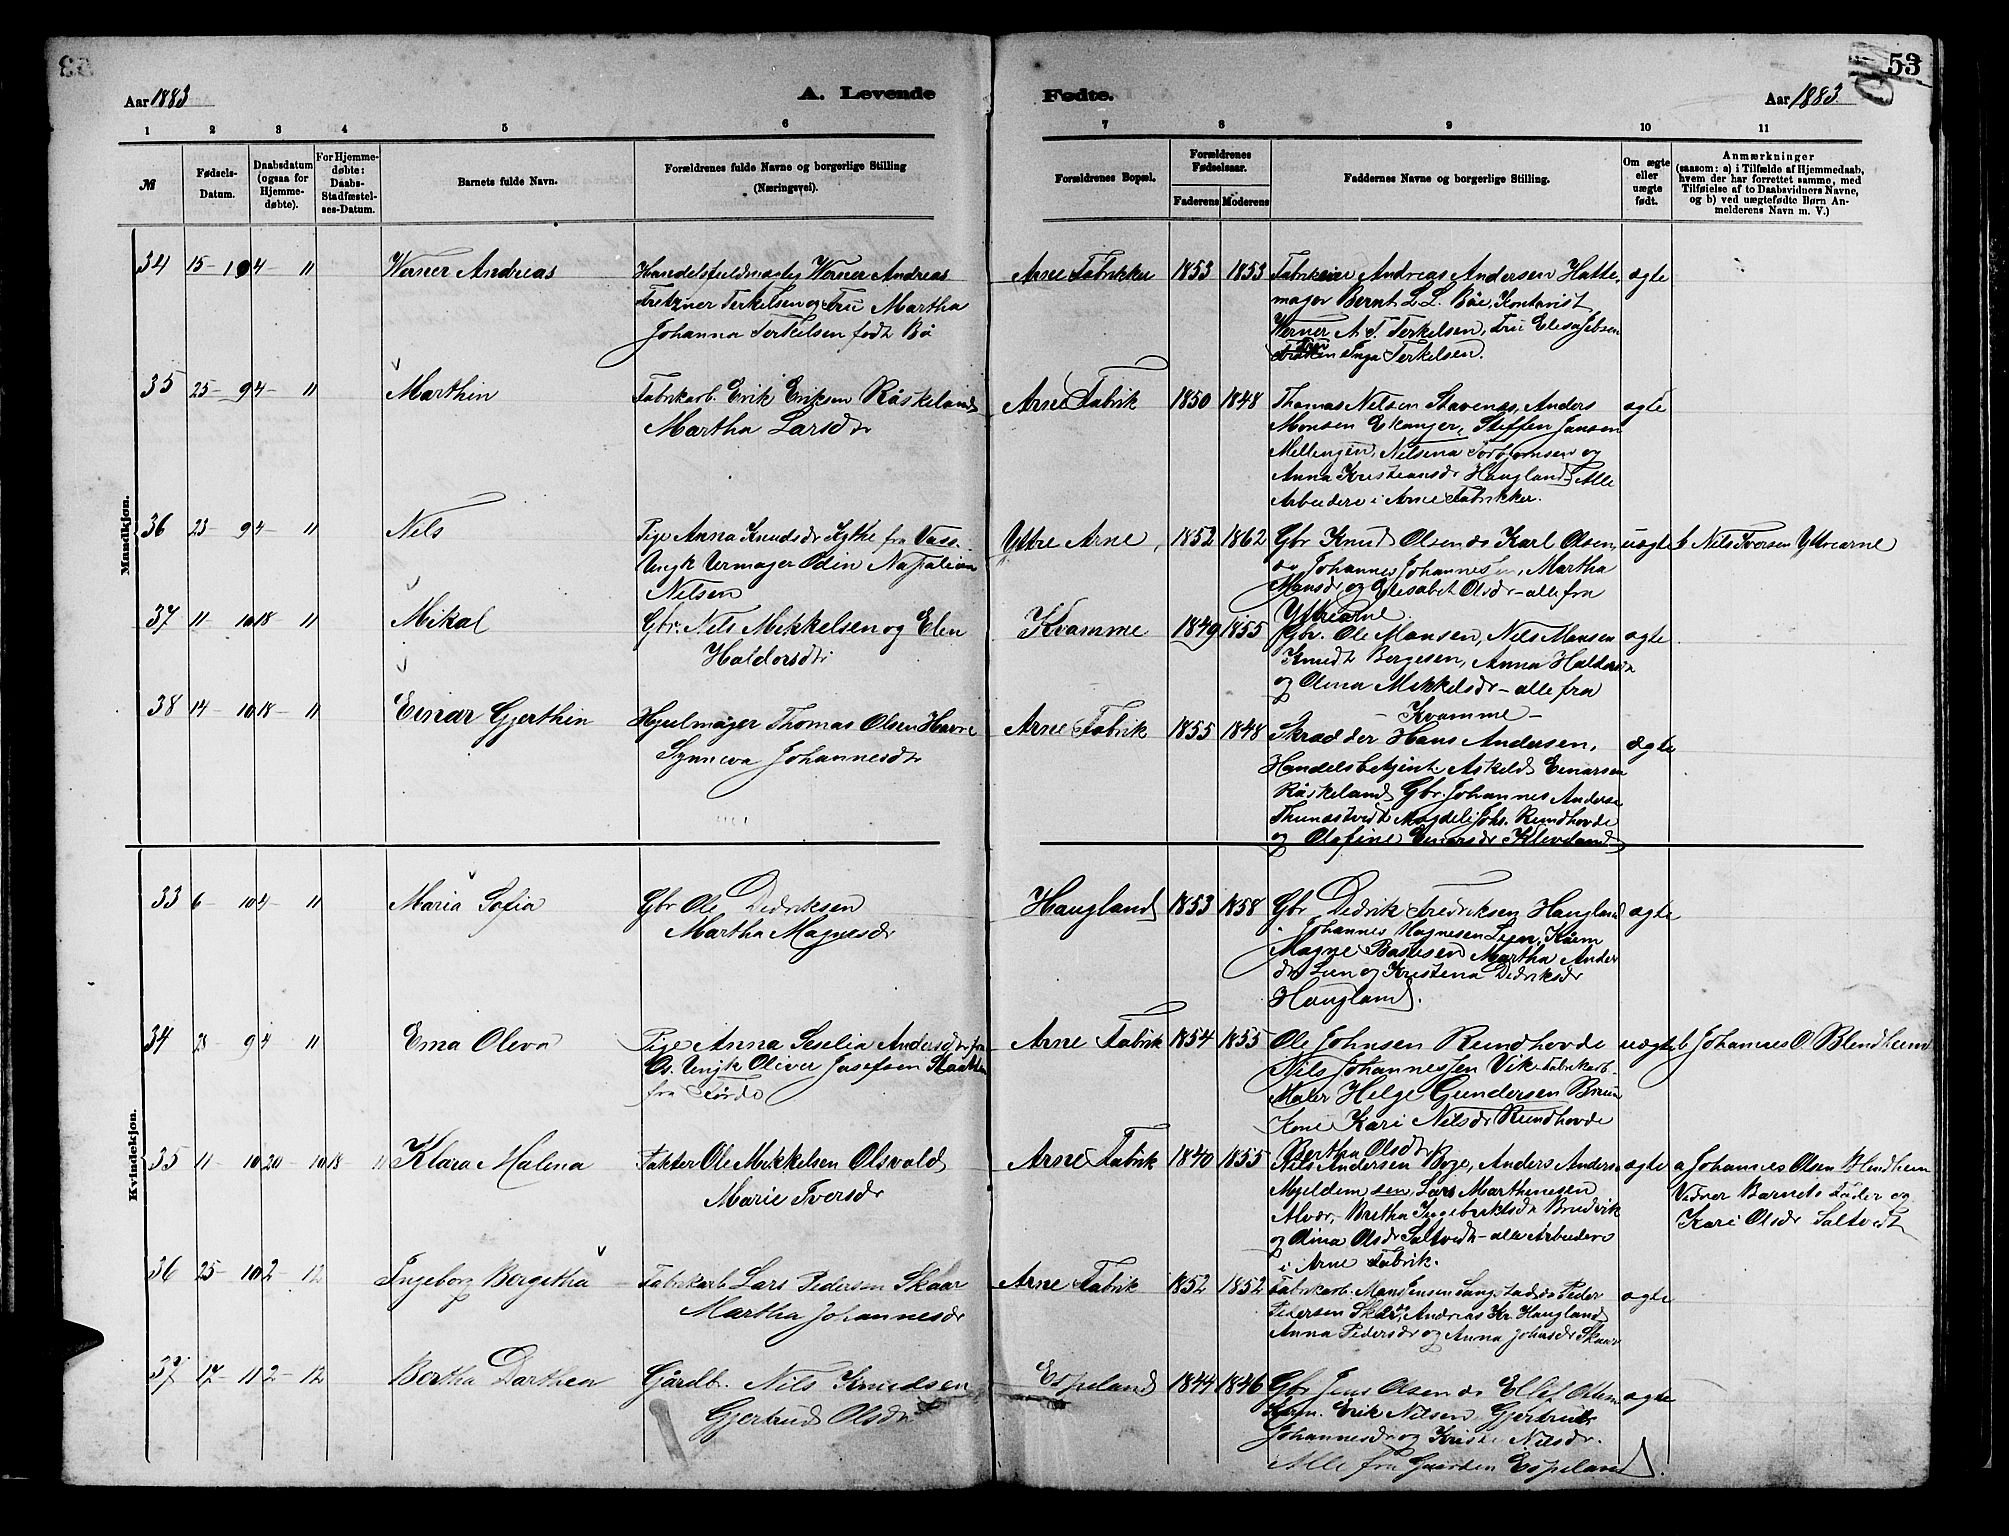 53
Aar 1883
A. Levende
Fødte.
Aar 1883
1 2 3 4 5 6 7 8 9 10 11
№
Fødsels-
Datum.
Daabsdatum
(ogsaa for
Hjemme-
døbte).
For Hjemme-
døbte:
Daabs-
Stadfæstel-
ses-Datum.
Barnets fulde Navn.
Forældrenes fulde Navne og borgerlige Stilling
(Næringsvei).
Forældrenes Bopæl.
Forældrenes
Fødselsaar.
Faderens Moderens
Faddernes Navne og borgerlige Stilling.
Om ægte
eller
uægte
født.
Anmærkninger
(saasom: a) i Tilfælde af Hjemmedaab,
hvem der har forrettet samme, med
Tilføielse af to Daabsvidners Navne,
og b) ved uægtefødte Børn An-
melderens Navn m. V.)
Mandkjøn.
34 15- 10 4- "
Werner Andreas
Handelsfuldmægtig Werner Andreas
Fretzner Terkelsen og Fru Martha
Johanna Terkelsen født Bö
Arne Fabrikker 1853 1853
Andreas Andersen Hatte-
mager Bernt L. L. Böe, Kontorist
Werner A. F. Terkelsen, Fru Elisa Jebsen
Inga Terkelsen.
ægte
35 25- 9 4- "
Marthin
Fabrikarb. Erik Eriksen Råskeland
Martha Larsdtr
Arne Fabrik 1850 1848
Thomas Nilsen Stavenes, Anders
Monsen Ekanger, Steffen Jansen
Mellingen, Nilsina Torbjornsen og
Anna Kristiansdr Haugland, Alle
Arbeidere i Arne Fabrikker.
ægte
36 23- 9 4- "
Nels
Pige Anna Knudsdr Kythe fra Voss.
Ungk. Urmager Odin Napolion
Nilsen
Yttre Arne, 1852 1862
Gbr Knud Olsen do Karl Olsen,
do Johannes Johannessen, Martha
Monsdr og Elisabet Olsdr - alle fra
Yttrearne
uægte
b Nils Iversen Yttrearne
37 11- 10 18- "
Mikal
Gbr. Nils Mikkelsen og Elen
Haldorsdtr
Kvamme 1849 1855
Gbr. Ole Monsen, Nils Monsen
Knudt Bergesen, Anna Haldorsdr
og Olina Mikkelsdr - alle fra
- Kvamme -
ægte
38 14- 10 18- "
Einar Gjerthin
Hjulmager Thomas Olsen Havre
Synneva Johannesdtr
Arne Fabrik 1855 1848
Skrædder Hans Andersen,
Handelsbetjent Askeld Einarsen
Råskeland, Gbr. Johannes Anderse
Thunestvedt Magdeli Johs. Rundhovde
og Olefine Einarsdr Kleveland
ægte
Kvindekjøn.
33 6- 10 4- "
Maria Sofia
Gbr Ole Dedriksen
Martha Magnesdr
Haugland 1853 1858
Gbr Dedrik Fredriksen Haugland
Johannes Magnesen Lien, Kårm
Magne Bastesen Martha Ander
dr Lien og Kristina Dedriksdr
Haugland.
ægte
34 23- 9 4- "
Ema Oleva
Pige Anna Seselia Andersdtr fra
Os. Ungk Oliver Josefsen
fra Förde
Arne Fabrik 1854 1855
Ole Johnsen Rundhovde
Nils Johannessen Vik - Fabrikarb.
Maler Helge Gundersen Bruun
Kone Kari Nilsdr Rundhovde
Bertha Olsdtr
uægte
b Johannes O. Blendheim
35 11- 10 20- 10 18 11
Klara Malena
Faktor Ole Mikkelsen Olsvold
Marie Iversdr
Arne Fabrik 1840 1855
Nils Andersen Boge, Anders Anders
Mjeldem sen, Lars Marthinesen
Alvær, Bretha Ingebriktsdr Brudvik
og Olina Olsdr Saltvedt - alle Arbeidere
i Arne Fabrik.
ægte
a Johannes Olsen Blendheim
Vidner Barnets Fader og
Kari Olsdr Saltvedt
36 25- 10 2- 12
Ingeborg Bergitha
Fabrikarb Lars Pedersen Skaar
Martha Johannesdr
Arne Fabrik 1852 1852
Fabrikarb. Mons Jensen Peder
Pedersen Skår, Andreas Kr. Haugland
Anna Pedersdr og Anna Johnsdr Skaar
ægte
37 17- 11 2- 12
Bertha Darthea
Gårdb. Nils Knudsen
Gjertrud Olsdr
Espeland 1844 1846
Gbr Jens Olsen do Ellef Olsen
Kårm. Erik Nilsen Gjertrud
Johannesdr og Nilsdr.
Alle fra Gaarden Espeland.
ægte